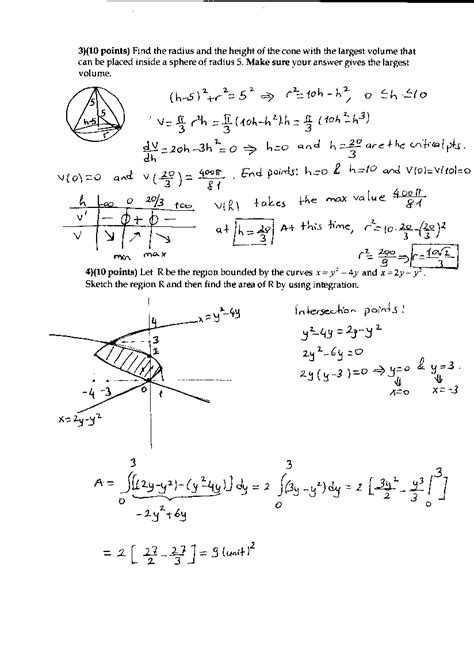 3)(10 points) Find the radius and the height of the cone with the largest volume that
can be placed inside a sphere of radius 5. Make sure your answer gives the largest
volume.
5
5
h-5
r
(h-5)²+r²=5² ⇒ r²=10h-h², 0≤h≤10
V=π/3 r²h=π/3 (10h-h²)h=π/3 (10h²-h³)
dV/dh=20h-3h²=0 ⇒ h=0 and h=20/3 are the critical pts.
V(0)=0 and V(20/3)=400π/81. End points: h=0 & h=10 and V(0)=V(10)=0
h -∞ 0 20/3 +∞
V' - 0 + 0 -
V ↘ ↗ ↘
min max
V(h) takes the max value 400π/81
at h=20/3 At this time, r²=10·20/3-(20/3)²
r²=200/9 ⇒ r=10√2/3
4)(10 points) Let R be the region bounded by the curves x=y²-4y and x=2y-y².
Sketch the region R and then find the area of R by using integration.
x=y²-4y
4
3
2
-4 -3 0 1
x=2y-y²
Intersection points:
y²-4y=2y-y²
2y²-6y=0
2y(y-3)=0 ⇒ y=0 & y=3.
⇓ ⇓
x=0 x=-3
A = ∫₀³[(2y-y²)-(y²-4y)]dy = 2 ∫₀³(3y-y²)dy = 2 [3y²/2 - y³/3 |₀³]
-2y²+6y
= 2 [27/2 - 27/3] = 9 (unit)²